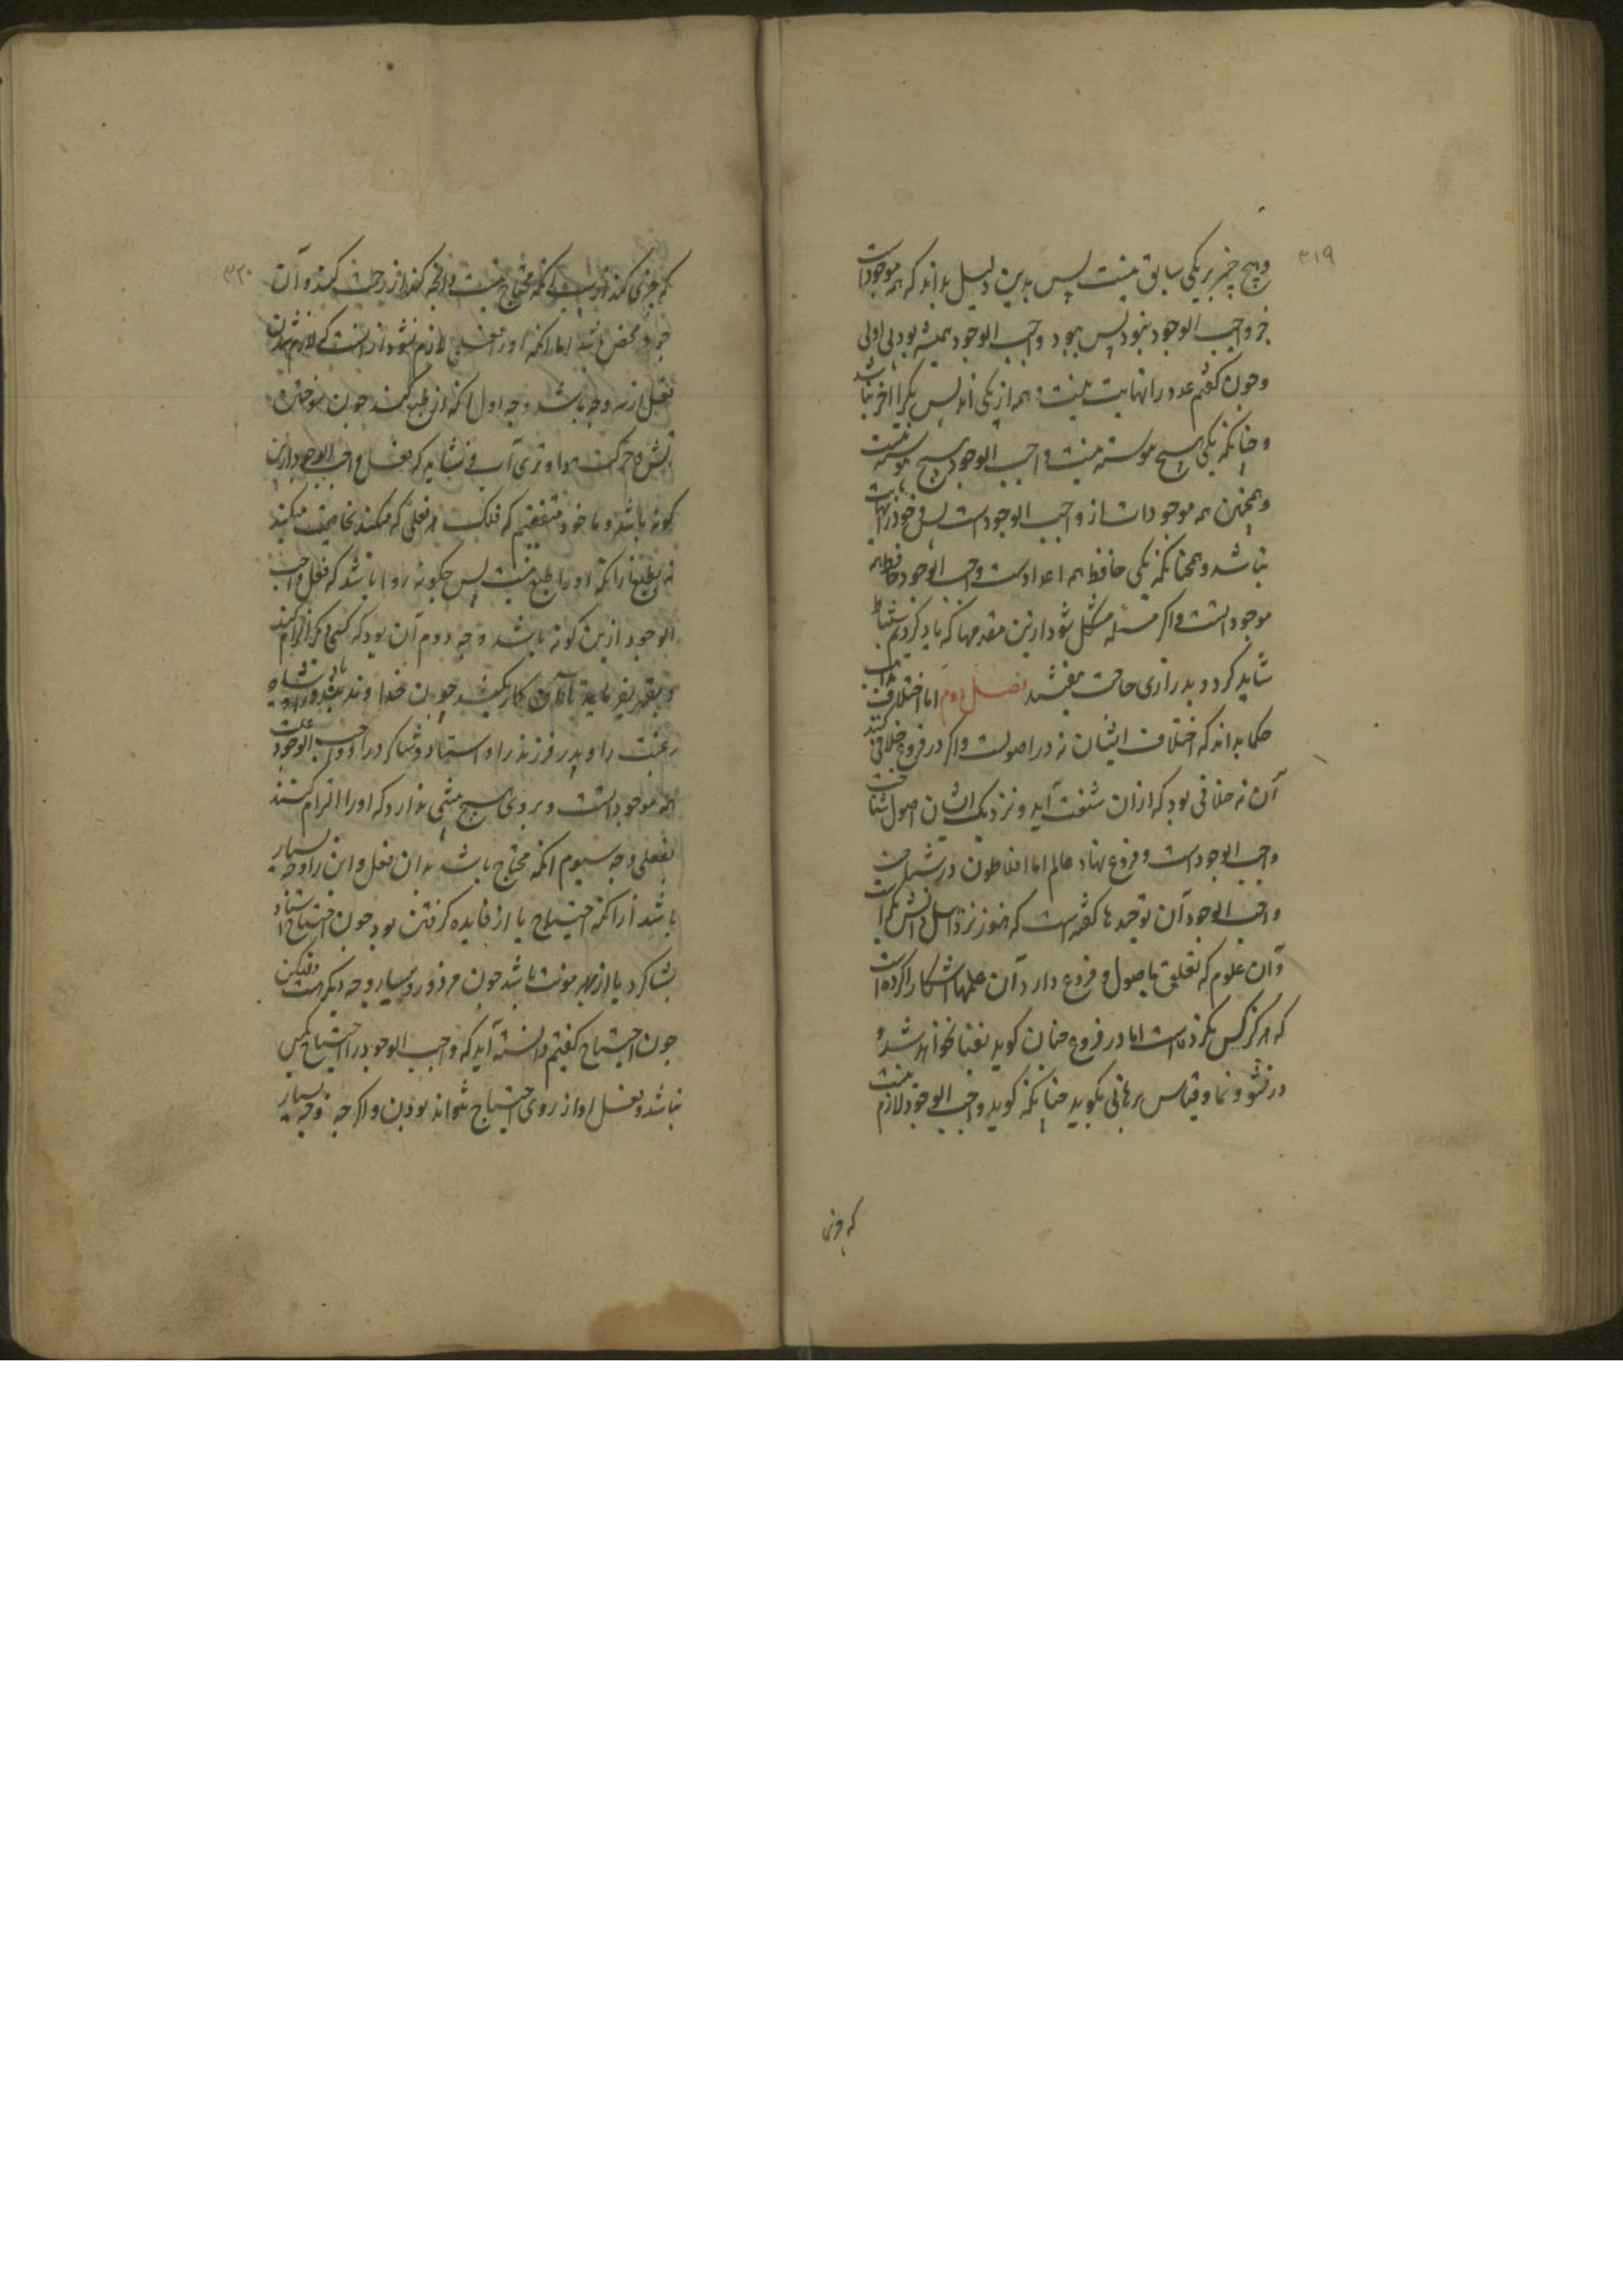 ۳۱۹
و هیچ چیز بر یکی سابق نیست پس بدین دلیل بداند که همه موجودات
جز واجب الوجود نبود پس بود واجب الوجود همیشه بود بی اولی
و چون کفتم عدد را نهایت نیست و همه از یکی اند پس یکی را آخر نباشد
و چنانکه یکی بهیچ پیوسته نیست واجب الوجود بهیچ پیوسته نیست
و همچنین همه موجودات از واجب الوجودست پس خود را نهایت
نباشد و همچنانکه یکی حافظ همه اعدادست واجب الوجود حافظ همه
موجوداتست و اکر مسئله مشکل شود ازین مقدمها که یاد کردیم استنباط
شاید کرد و بدرازی حاجت نیفتد فصل دوم اما اختلاف
حکما بداند که اختلاف ایشان نه در اصولست و اکر در فروع خلافی کنند
آن نه خلافی بود که ازان شکفت آید و نزدیک ایشان اصول شناخت
واجب الوجودست و فروع نهاد عالم اما افلاطون در شناخت
واجب الوجود آن توحیدها کفته است که هنوز نزد اهل دانش بکرست
و آن علوم که تعلق باصول و فروع دارد آن علمها اشکارا کرده است
که هرکز کس نکرده است اما در فروع چنان کوید نفنا نخواهد شد و
در نشو و نما و قیاس برهانی نکوید چنانکه کوید واجب الوجود لازم نیست
که چیزی
۳۲۰
که چیزی کند ازبهر آنکه محتاج نیست و آنچه کند از رحمت کند و آن
جود محض باشد اما آنکه او را فعل لازم نشود از آنست که لازم شدن
فعل از سه وجه باشد وجه اول آنکه از طبع کند چون سوختن
آتش و حرکت هوا و تری آب و نشاید که فعل واجب الوجود ازین
کونه باشد و ما خود متفقیم که فلک هر فعلی که میکند بخاصیت میکند
نه بطبع ازیراکه او را طبع نیست پس چکونه روا باشد که فعل واجب
الوجود ازین کونه باشد وجه دوم آن بود که کسی دیکر الزام کند
و بقهر بفرماید تا آن کار بکند چون خداوند بنده را و پادشاه
رعیت را و پدر فرزند را و استاد شاکرد را و واجب الوجود علت
همه موجوداتست و بر وی هیچ پیشی ندارد که او را الزام کنند
بفعلی وجه سیوم آنکه محتاج باشد بدان فعل و این را وجه بسیار
باشد ازیراکه احتیاج یا از فایده کرفتن بود چون احتیاج استاد
بشاکرد یا از بهر مونت باشد چون مزدور و بسیار وجه دیکر است ولیکن
چون احتیاج کفتیم دانسته آید که واجب الوجود را احتیاج بکس
نباشد و فعل او از روی احتیاج نتواند بودن و اکرچه وجه بسیار